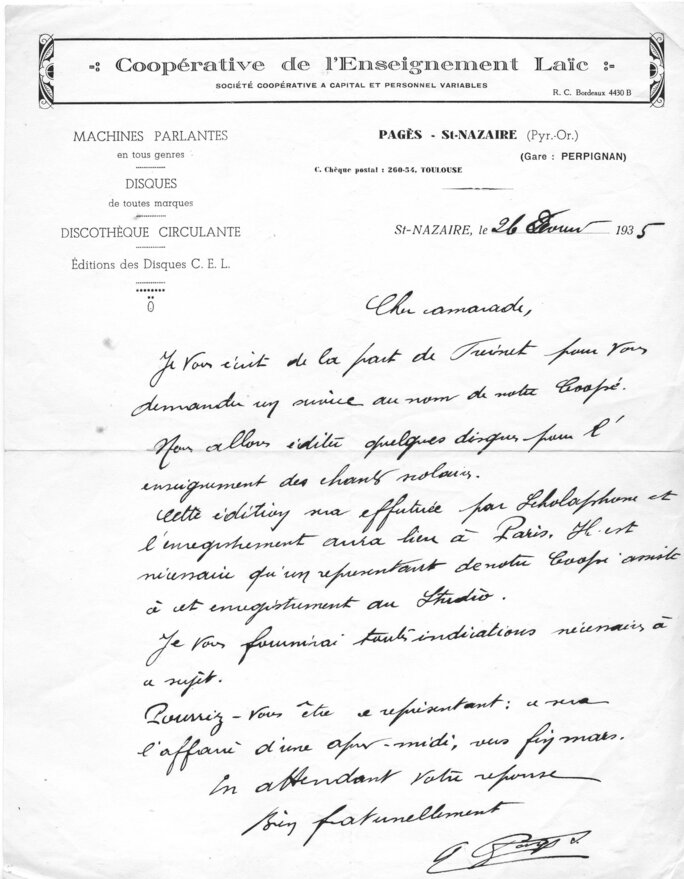 -: Coopérative de l'Enseignement Laïc :-
SOCIÉTÉ COOPÉRATIVE A CAPITAL ET PERSONNEL VARIABLES
R. C. Bordeaux 4430 B
MACHINES PARLANTES
en tous genres
DISQUES
de toutes marques
DISCOTHÈQUE CIRCULANTE
Éditions des Disques C. E. L.
PAGÈS - St-NAZAIRE (Pyr.-Or.)
(Gare : PERPIGNAN)
C. Chèque postal : 260-54, TOULOUSE
St-NAZAIRE, le 26 1935
Cher camarade,
Je vous écrit de la part de Freinet pour vous
demander un service au nom de notre Coopé.
Nous allons éditer quelques disques pour l'
enseignement des chants scolaires.
Cette édition sera effectuée par Scholaphone et
l'enregistrement aura lieu à Paris. Il est
nécessaire qu'un représentant de notre Coopé assiste
à cet enregistrement au Studio.
Je vous fournirai toutes indications nécessaires à
ce sujet.
Pourriez-vous être ce représentant : ce sera
l'affaire d'une après-midi, vers fin mars.
En attendant votre réponse
Bien fraternellement
Pagès